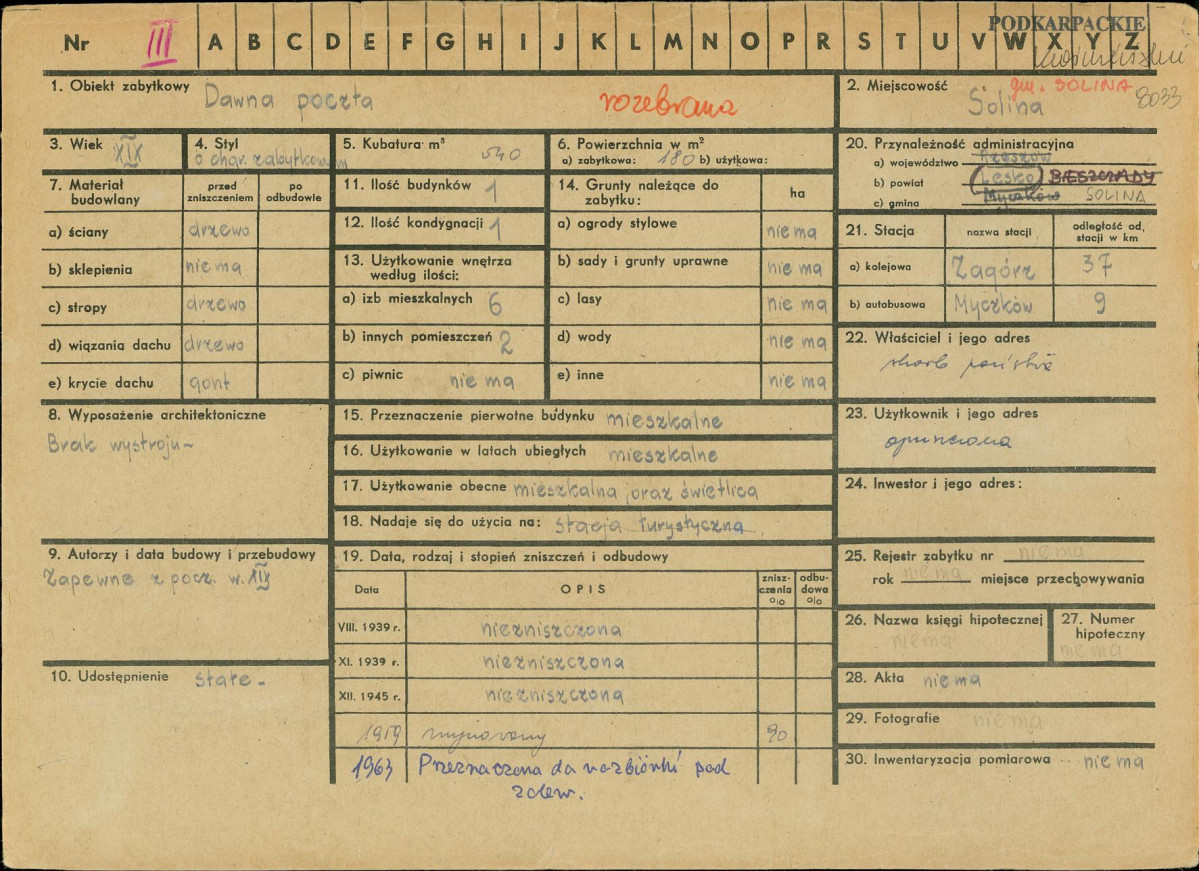 PODKARPACKIE
Nr III A B C D E F G H I J K L M N O P R S T U V W X Y Z
1. Obiekt zabytkowy Dawna poczta rozebrana
2. Miejscowość gm. SOLINA
Solina 8033
3. Wiek XIX
4. Styl
o char. zabytkowym
5. Kubatura m³ 540
6. Powierzchnia w m²
a) zabytkowa: 180 b) użytkowa:
20. Przynależność administracyjna
a) województwo Rzeszów
b) powiat Lesko BIESZCZADY
c) gmina Myczków SOLINA
7. Materiał budowlany
przed zniszczeniem
po odbudowie
a) ściany drzewo
b) sklepienia nie ma
c) stropy drzewo
d) wiązania dachu drzewo
e) krycie dachu gont
11. Ilość budynków 1
12. Ilość kondygnacji 1
13. Użytkowanie wnętrza
według ilości:
a) izb mieszkalnych 6
b) innych pomieszczeń 2
c) piwnic nie ma
14. Grunty należące do
zabytku:
ha
a) ogrody stylowe nie ma
b) sady i grunty uprawne nie ma
c) lasy nie ma
d) wody nie ma
e) inne nie ma
21. Stacja
nazwa stacji
odległość od,
stacji w km
a) kolejowa Zagórz 37
b) autobusowa Myczków 9
22. Właściciel i jego adres
skarb państwa
8. Wyposażenie architektoniczne
Brak wystroju
15. Przeznaczenie pierwotne budynku mieszkalne
16. Użytkowanie w latach ubiegłych mieszkalne
17. Użytkowanie obecne mieszkalna, oraz świetlica
18. Nadaje się do użycia na: stacja turystyczna
23. Użytkownik i jego adres
opuszczona
24. Inwestor i jego adres:
9. Autorzy i data budowy i przebudowy
Zapewne z pocz. w. XIX
10. Udostępnienie stałe
19. Data, rodzaj i stopień zniszczeń i odbudowy
Data
OPIS
znisz-
czenia
%
odbu-
dowa
%
VIII. 1939 r. niezniszczona
XI. 1939 r. niezniszczona
XII. 1945 r. niezniszczona
1959 90
1963 Przeznaczona do rozbiórki pod
zalew.
25. Rejestr zabytku nr nie ma
rok nie ma miejsce przechowywania
26. Nazwa księgi hipotecznej
nie ma
27. Numer
hipoteczny
nie ma
28. Akta nie ma
29. Fotografie nie ma
30. Inwentaryzacja pomiarowa nie ma